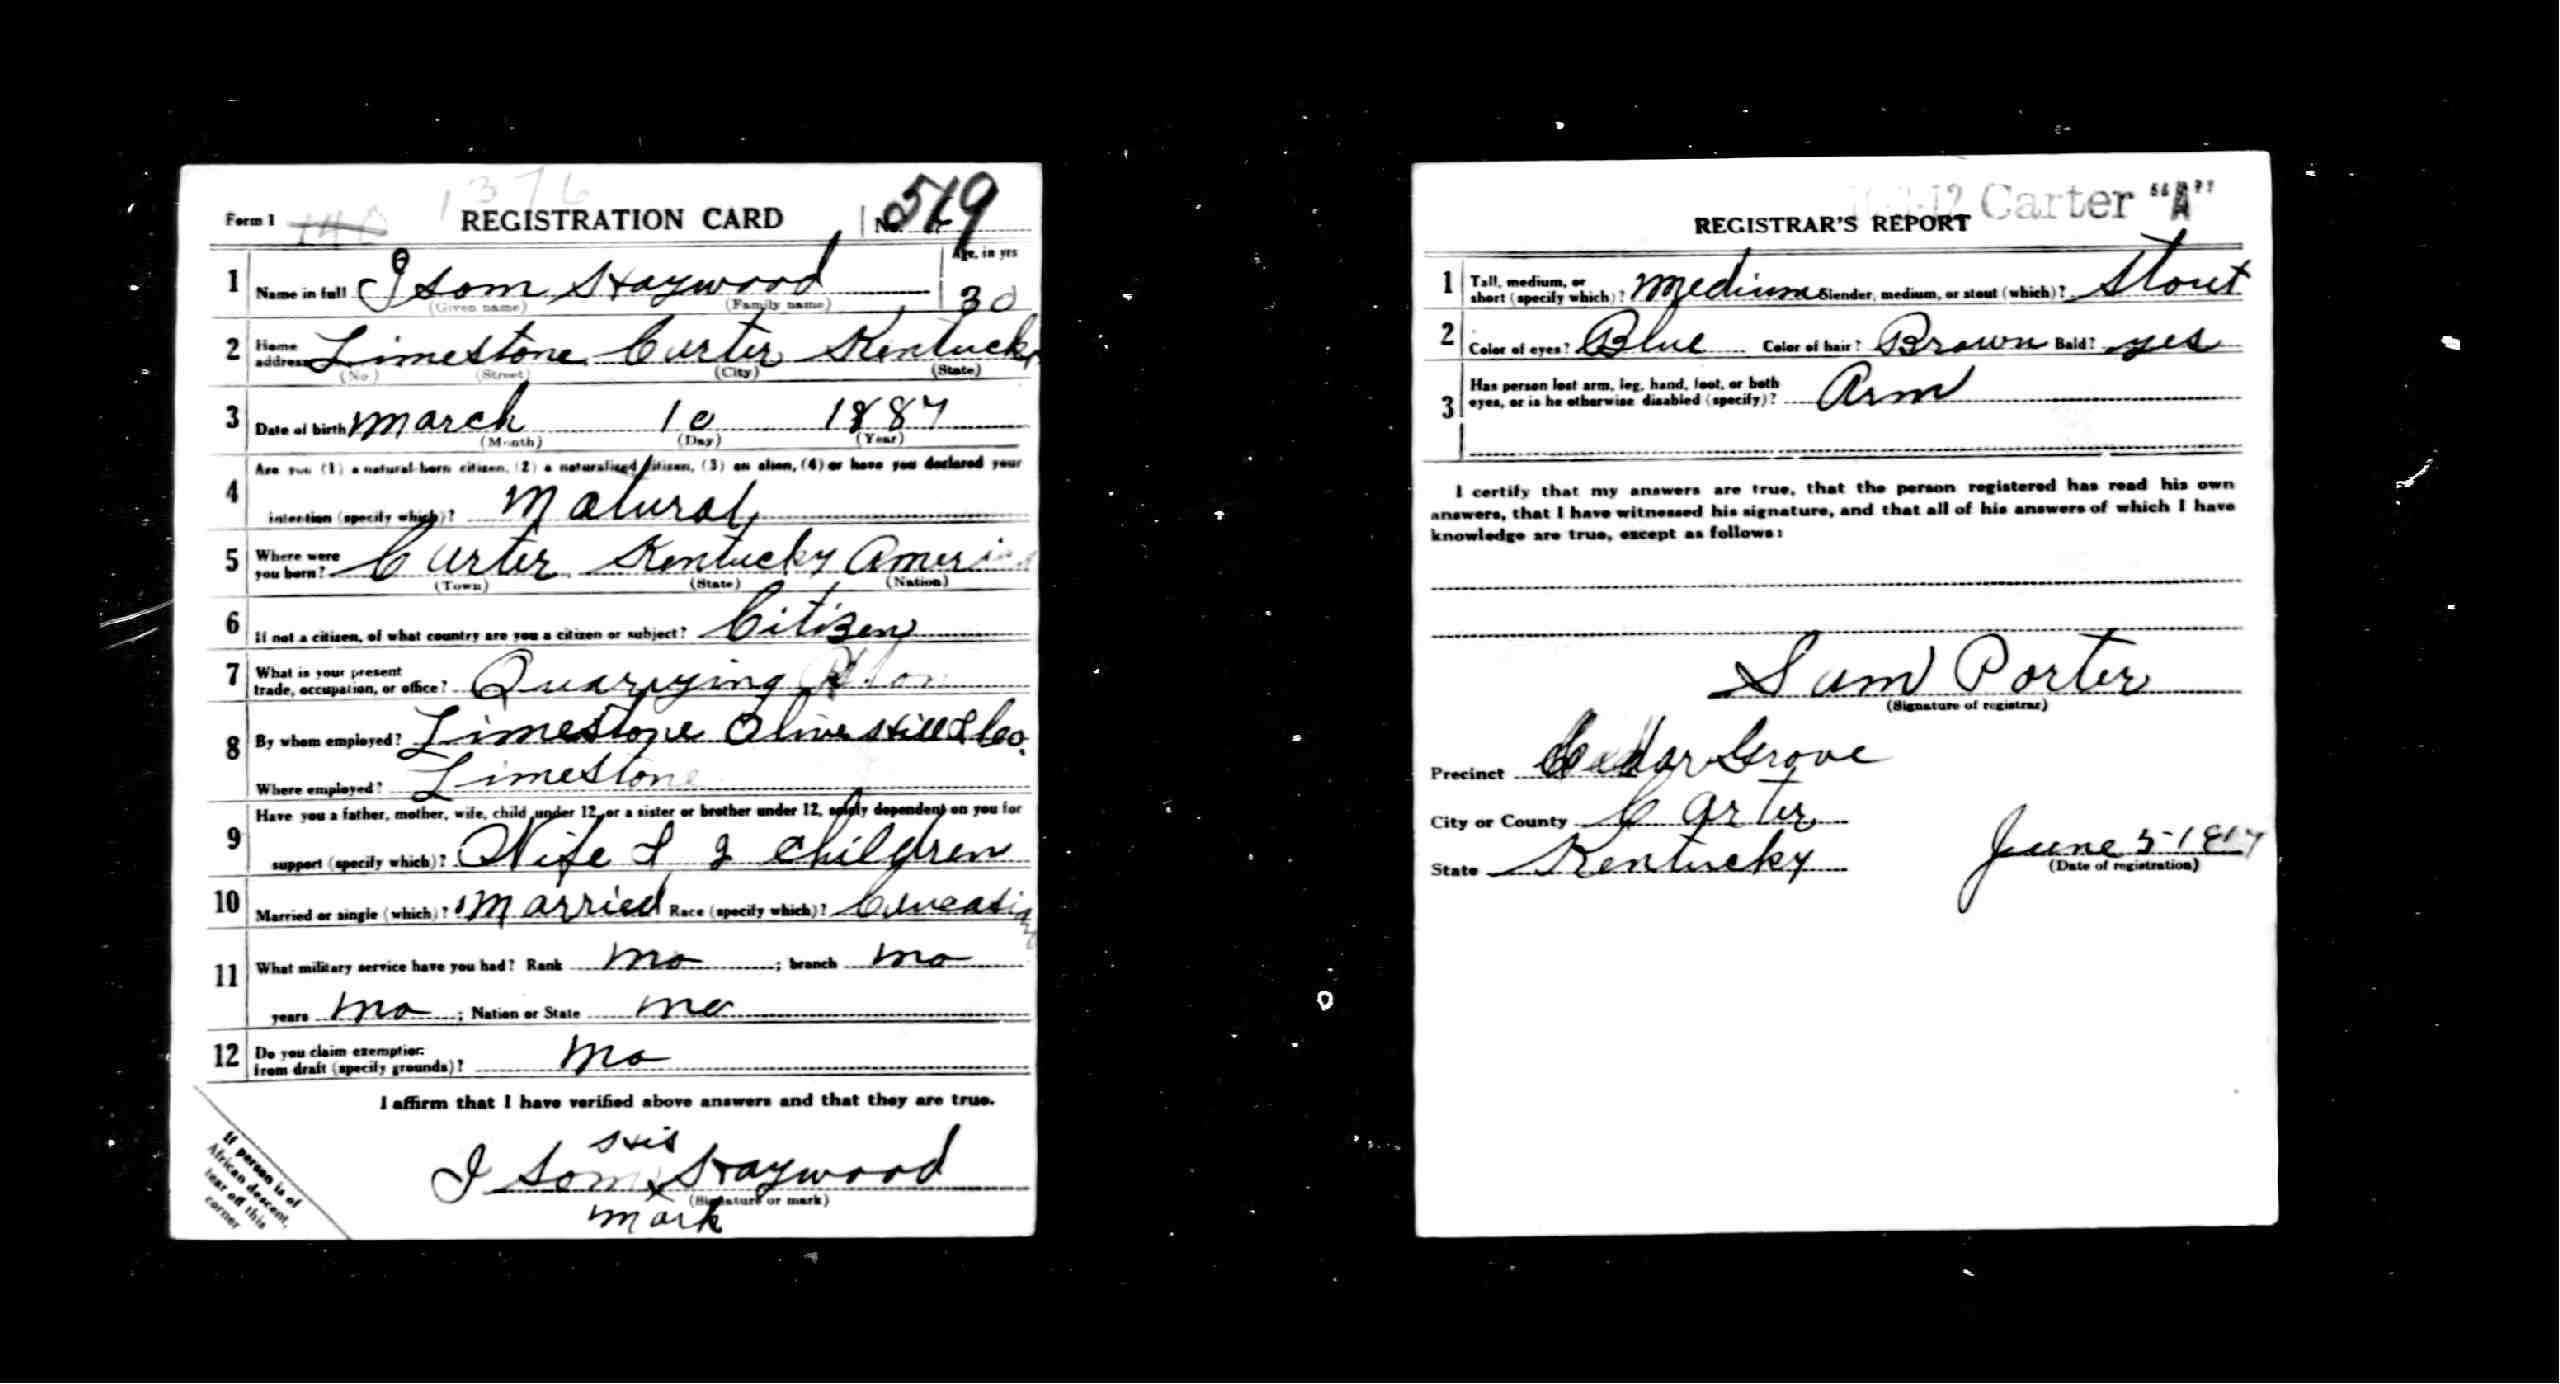 1376
Form 1 140 REGISTRATION CARD No. 519
1 Name in full Isom Haywood Age, in yrs 30
(Given name) (Family name)
2 Home address Limestone Carter Kentucky
(No) (Street) (City) (State)
3 Date of birth March 10 1887
(Month) (Day) (Year)
Are you (1) a natural-born citizen, (2) a naturalized citizen, (3) an alien, (4) or have you declared your
4 intention (specify which)? Natural
5 Where were you born? Carter Kentucky Ameri
(Town) (State) (Nation)
6 If not a citizen, of what country are you a citizen or subject? Citizen
7 What is your present trade, occupation, or office? Quarrying
8 By whom employed? Limestone Olive Hill & Co.
Where employed? Limestone
Have you a father, mother, wife, child under 12, or a sister or brother under 12, solely dependent on you for
9 support (specify which)? Wife & 2 children
10 Married or single (which)? Married Race (specify which)? Caucasian
11 What military service have you had? Rank no ; branch no
years no ; Nation or State no
12 Do you claim exemption from draft (specify grounds)? no
I affirm that I have verified above answers and that they are true.
His
Isom x Haywood
(Signature or mark)
mark
If person is of
African descent,
tear off this
corner
Carter "A"
REGISTRAR'S REPORT
1 Tall, medium, or short (specify which)? Medium Slender, medium, or stout (which)? Stout
2 Color of eyes? Blue Color of hair? Brown Bald? yes
3 Has person lost arm, leg, hand, foot, or both
eyes, or is he otherwise disabled (specify)? Arm
I certify that my answers are true, that the person registered has read his own
answers, that I have witnessed his signature, and that all of his answers of which I have
knowledge are true, except as follows:
Sam Porter
(Signature of registrar)
Precinct Cedar Grove
City or County Carter
State Kentucky June 5-1917
(Date of registration)